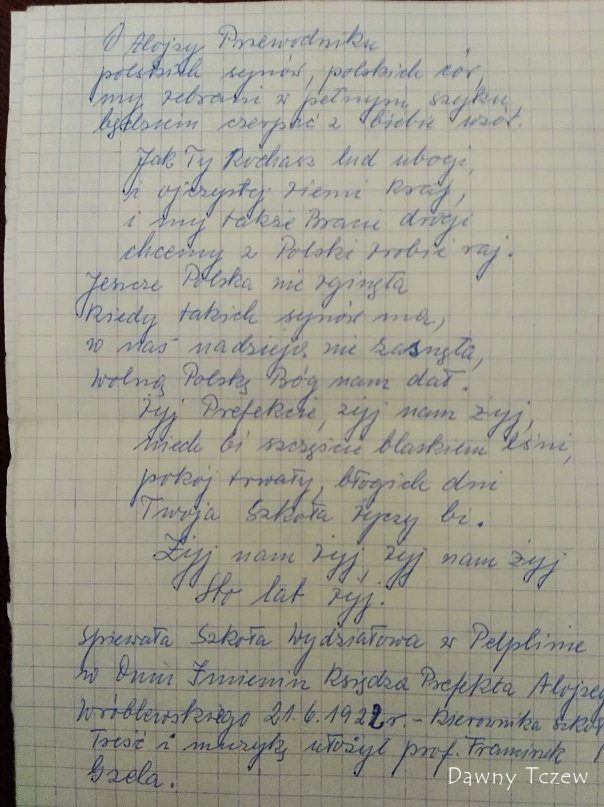 O Alojzy Przewodniku
polskich synów, polskich cór,
my zebrani w pełnym szyku,
będziem czerpać z Ciebie wzór.
Jak Ty kochasz lud ubogi,
i ojczystej ziemi kraj,
i my także Bracie drogi
chcemy z Polski zrobić raj.
Jeszcze Polska nie zginęła
kiedy takich synów ma,
w nas nadzieja nie zasnęła,
Wolną Polskę Bóg nam dał.
Żyj Prefekcie, żyj nam żyj,
niech Ci szczęście blaskiem lśni,
pokój trwały, błogich dni
Twoja Szkoła życzy Ci.
Żyj nam żyj, żyj nam żyj
Sto lat żyj.
Śpiewała Szkoła Wydziałowa w Pelplinie
w Dniu Imienin Księdza Prefekta Alojzego
Wróblewskiego 21.6.1922 r. - Kierownika szkoły
Treść i muzykę ułożył prof. Franciszek
Gzela.
Dawny Tczew